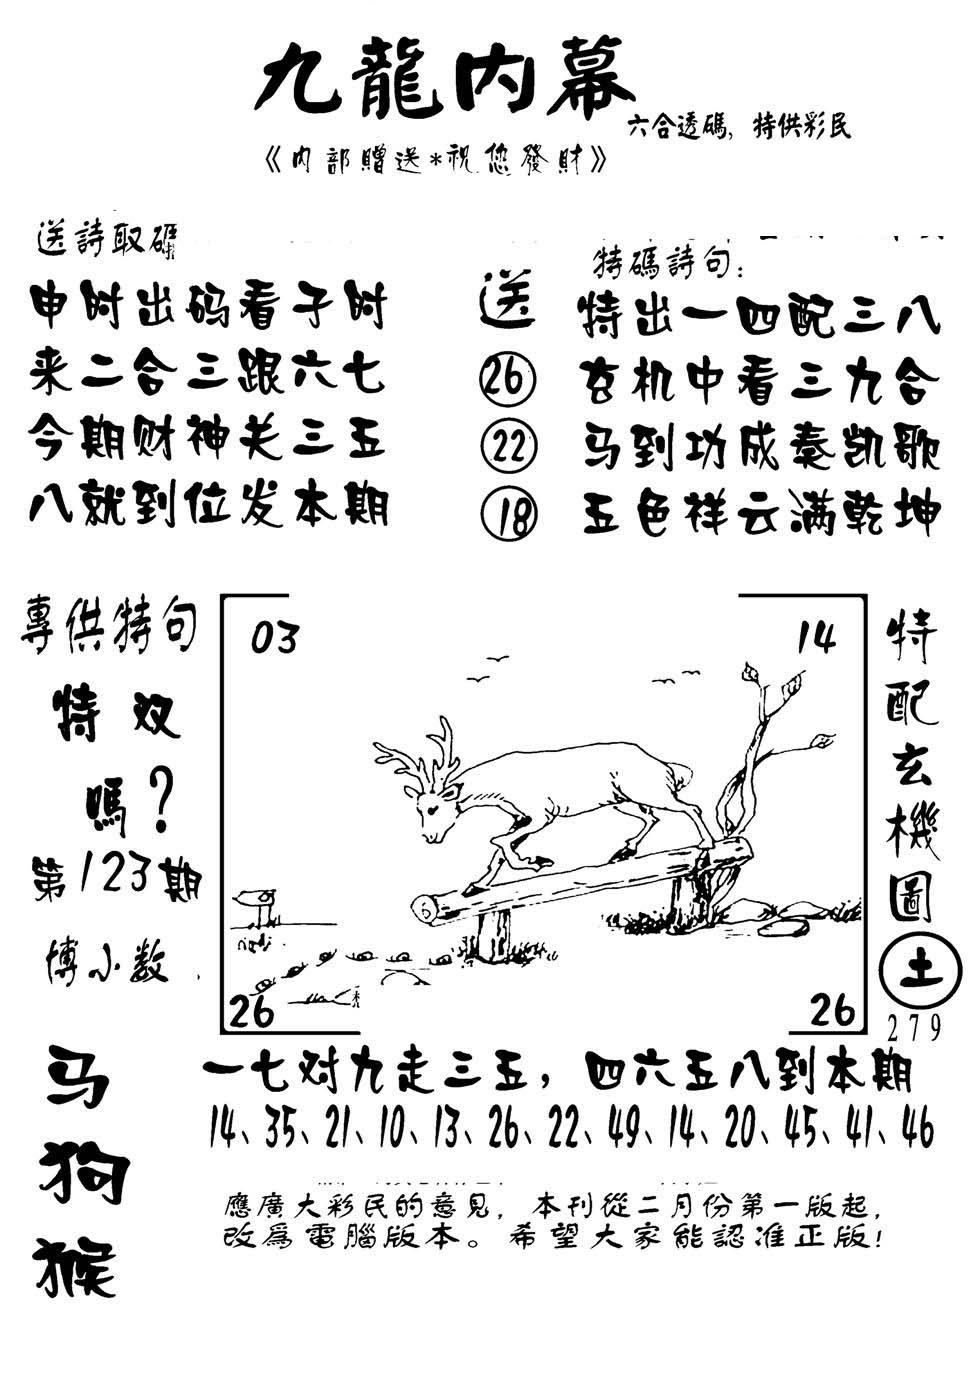 九龍内幕
六合透碼，特供彩民
《内部贈送*祝您發財》
送詩取碼
申时出码看子时
来二合三跟六七
今期财神关三五
八就到位发本期
送
26
22
18
特碼詩句：
特出一四配三八
玄机中看三九合
马到功成奏凯歌
五色祥云满乾坤
專供特句
特双
嗎？
第123期
博小数
03
14
26
26
特配玄機圖
土
279
马
狗
猴
一七对九走三五，四六五八到本期
14、35、21、10、13、26、22、49、14、20、45、41、46
應廣大彩民的意見，本刊從二月份第一版起，
改爲電腦版本。希望大家能認准正版！